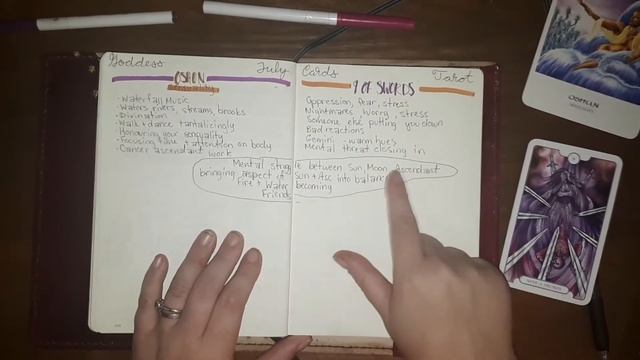 Goddess July
OSHUN
- Waterfall Music
- Waters rivers, streams, brooks
- Divination
- Walk + dance tantalizingly
- Honouring your sensuality
- Focusing + attention on body
work
- Cancer ascendant
Cards Tarot
9 OF SWORDS
Oppression, fear, stress
Nightmares, worry, stress
Someone else putting you down
Bad reactions
Gemini - warm hues
Mental threat closing in
Mental struggle between Sun, Moon, Ascendant
bringing aspect of Sun + Asc into balance
Fire + Water becoming
Friends
OSHUN